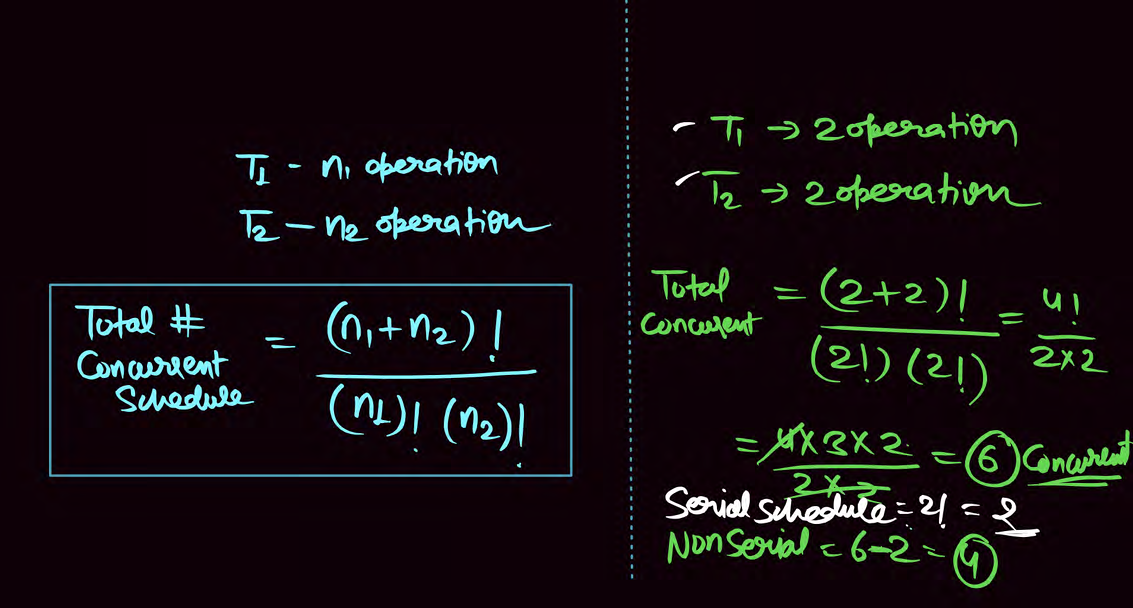 T1 - n1 operation
T2 - n2 operation
Total #
Concurrent
Schedule
= (n1+n2)! / (n1)! (n2)!
T1 → 2 operation
T2 → 2 operation
Total
Concurrent
= (2+2)! / (2!) (2!) = 4! / 2×2
= 4×3×2 / 2×2 = 6 Concurrent
Serial Schedule = 2! = 2
Non Serial = 6-2 = 4